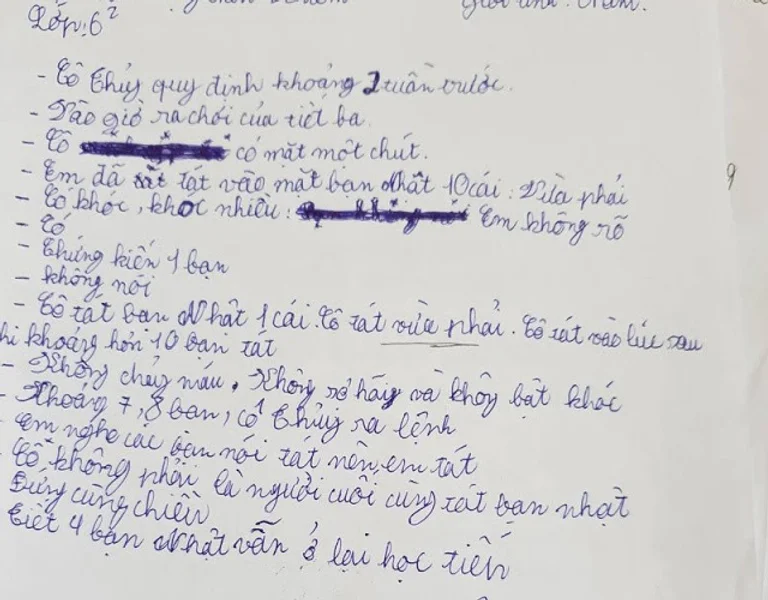 Lớp: 6²
- Cô Thủy quy định khoảng 2 tuần trước.
- Vào giờ ra chơi của tiết ba
- Cô có mặt một chút.
- Em đã tát vào mặt bạn Nhật 10 cái: Vừa phải
- Có khóc, khóc nhiều: Em không rõ
- Có
- Chứng kiến 1 bạn
- không nói
- Cô tát bạn Nhật 1 cái. Cô tát vừa phải. Cô tát vào lúc sau
khi khoảng hơn 10 bạn tát
- Không chảy máu. Không và không bật khóc
- Khoảng 7, 8 bạn, cô Thủy ra lệnh
Em nghe các bạn nói tát nên em tát
Cô không phải là người cuối cùng tát bạn nhật
Đứng cùng chiều
tiết 4 bạn Nhật vẫn ở lại học tiến